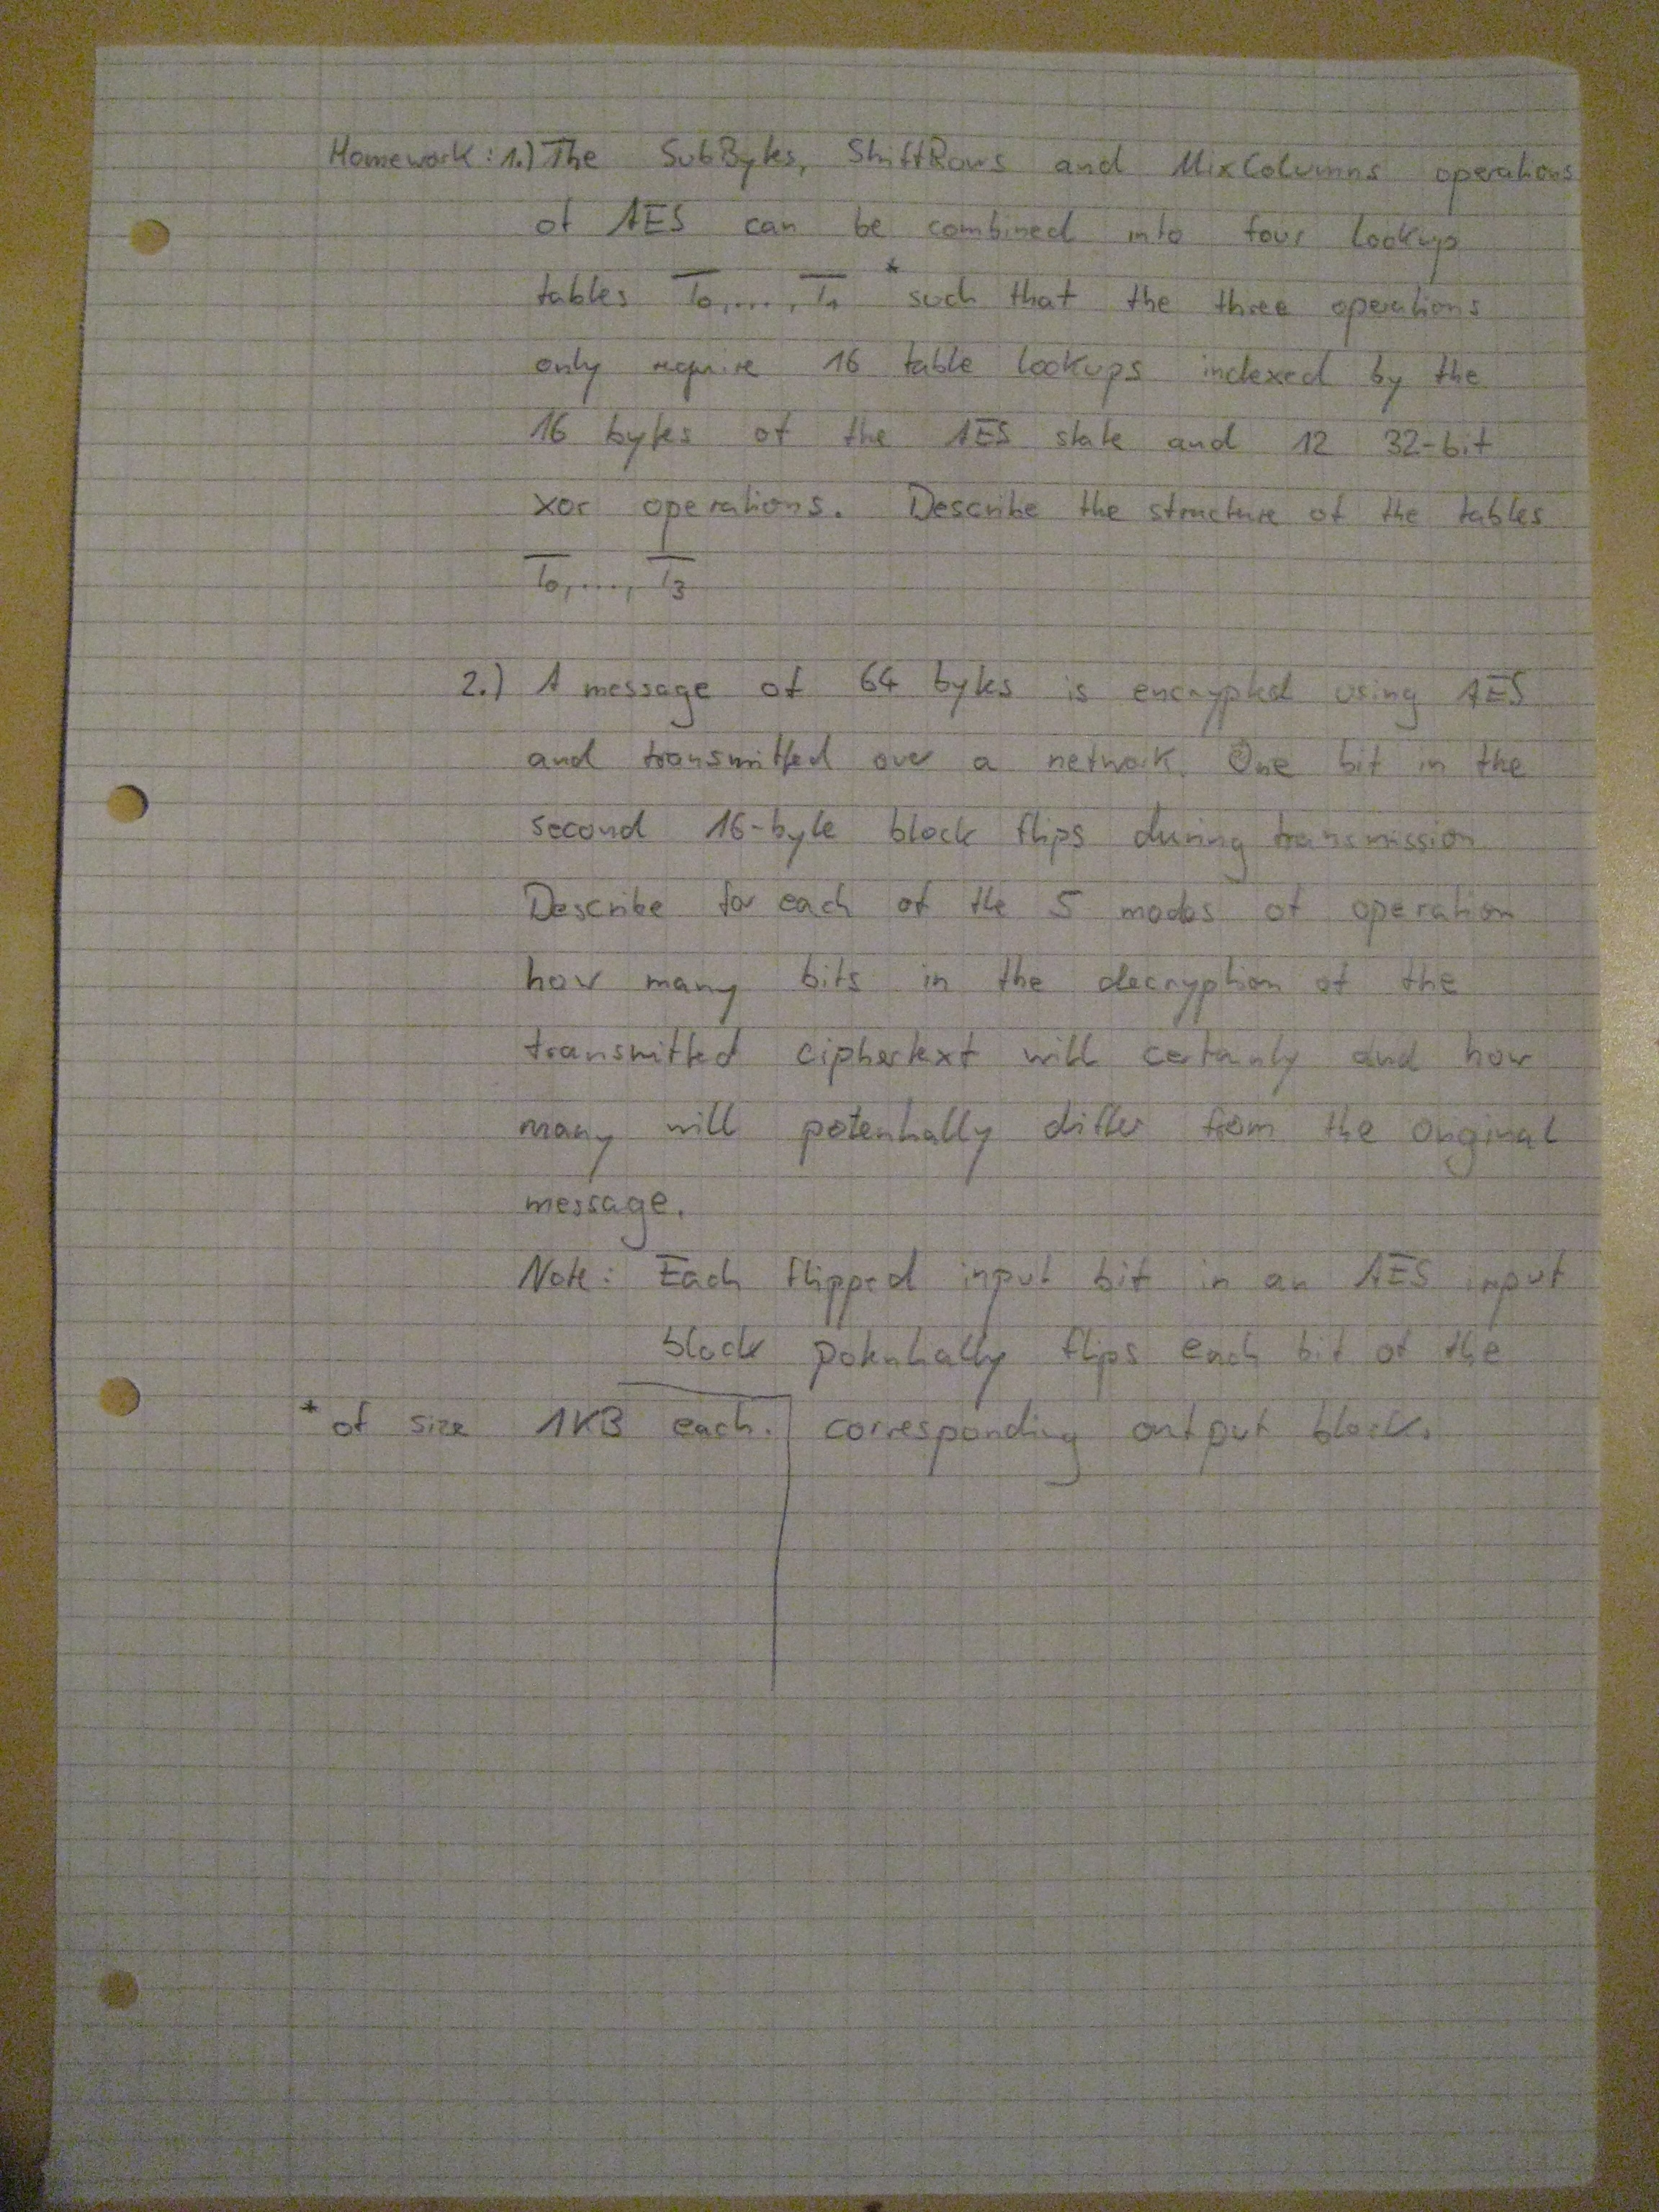 Homework: 1.) The SubBytes, ShiftRows and MixColumns operations
of AES can be combined into four lookup
tables T0,...,T4 * such that the three operations
only require 16 table lookups indexed by the
16 bytes of the AES state and 12 32-bit
xor operations. Describe the structure of the tables
T0,...., T3
2.) A message of 64 bytes is encrypted using AES
and transmitted over a network. One bit in the
second 16-byte block flips during transmission
Describe for each of the 5 modes of operation
how many bits in the decryption of the
transmitted ciphertext will certainly and how
many will potentially differ from the original
message.
Note: Each flipped input bit in an AES input
block potentially flips each bit of the
* of size 1KB each. corresponding output block.